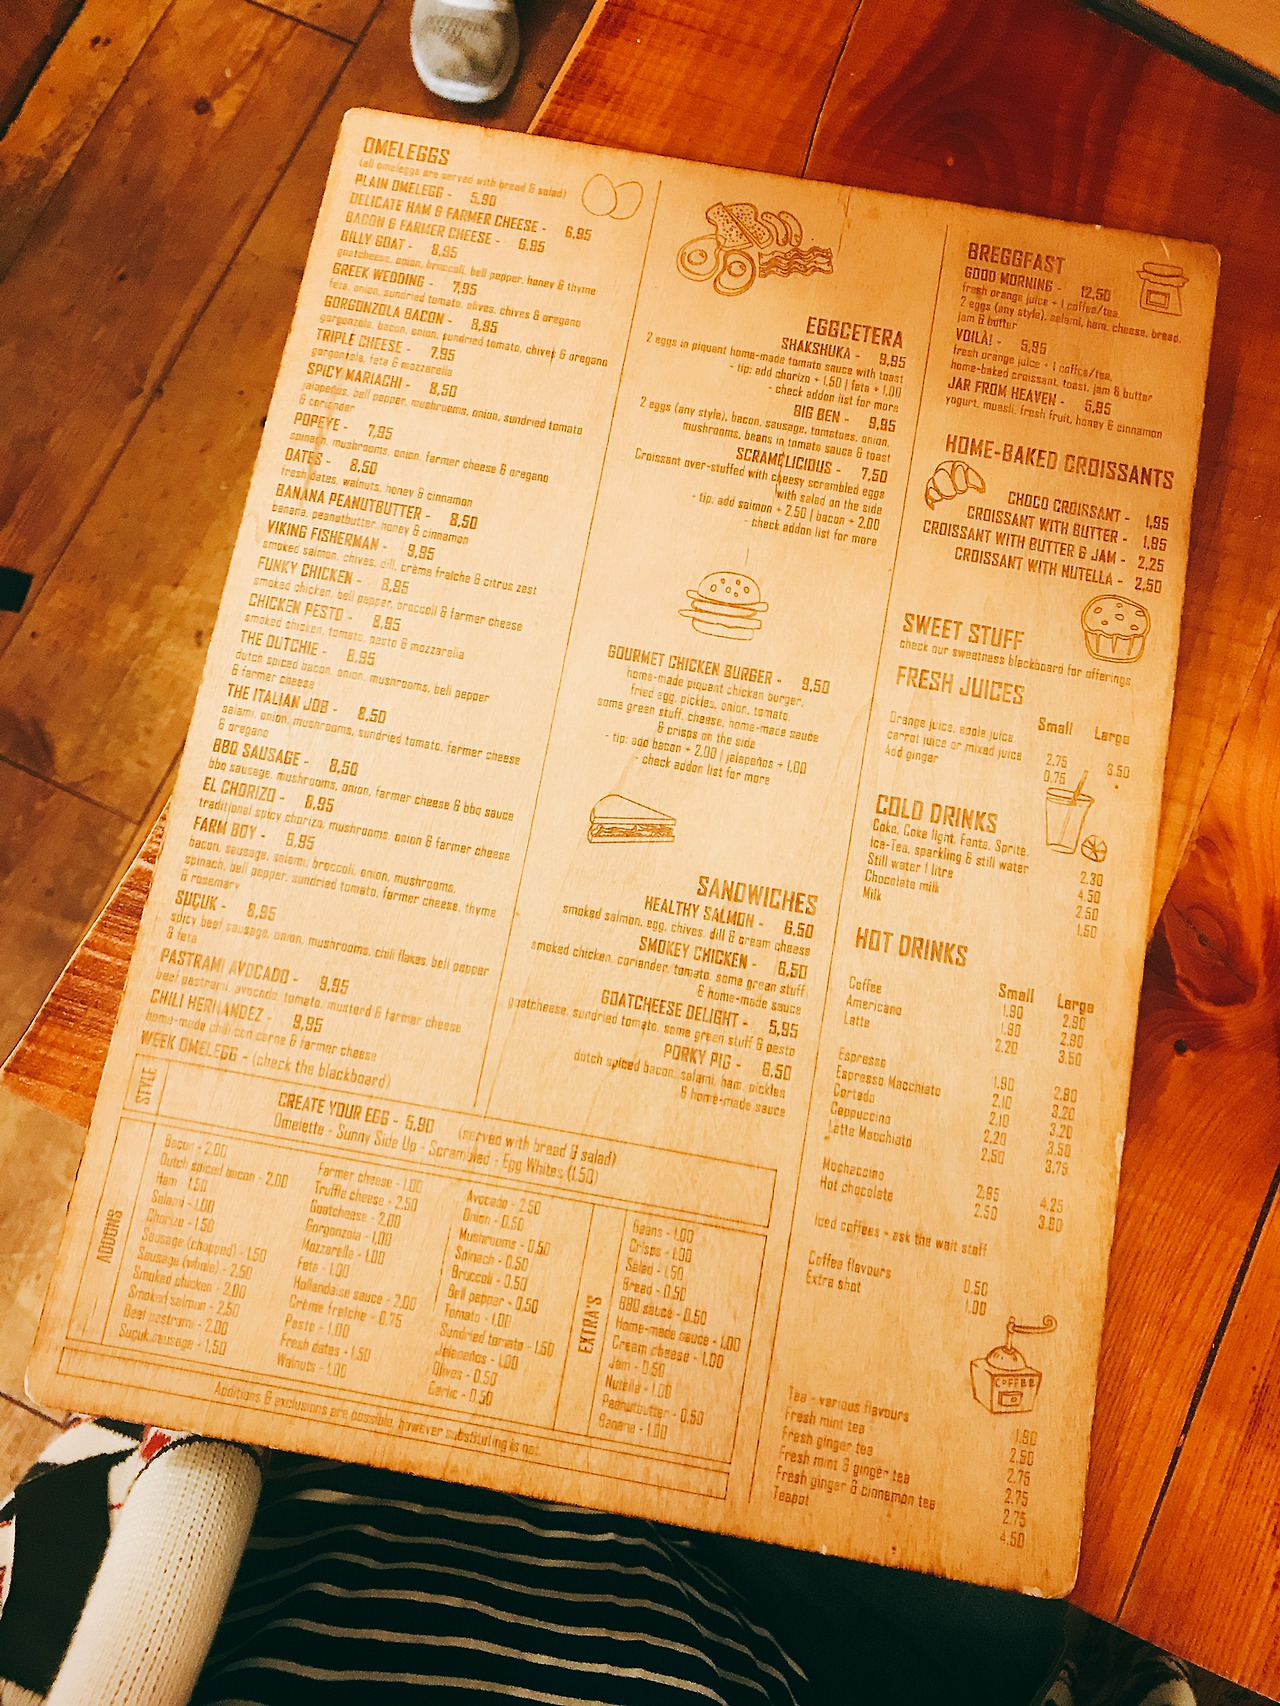 OMELEGGS
(all omeleggs are served with bread & salad)
PLAIN OMELEGG - 5,90
DELICATE HAM & FARMER CHEESE - 6,95
BACON & FARMER CHEESE - 6,95
BILLY GOAT - 8,95
goatcheese, onion, broccoli, bell pepper, honey & thyme
GREEK WEDDING - 7,95
feta, onion, sundried tomato, olives, chives & oregano
GORGONZOLA BACON - 8,95
gorgonzola, bacon, onion, sundried tomato, chives & oregano
TRIPLE CHEESE - 7,95
gorgonzola, feta & mozzarella
SPICY MARIACHI - 8,50
jalapeños, bell pepper, mushrooms, onion, sundried tomato
& coriander
POPEYE - 7,95
spinach, mushrooms, onion, farmer cheese & oregano
DATES - 8,50
fresh dates, walnuts, honey & cinnamon
BANANA PEANUTBUTTER - 8,50
banana, peanutbutter, honey & cinnamon
VIKING FISHERMAN - 9,95
smoked salmon, chives, dill, crème fraîche & citrus zest
FUNKY CHICKEN - 8,95
smoked chicken, bell pepper, broccoli & farmer cheese
CHICKEN PESTO - 8,95
smoked chicken, tomato, pesto & mozzarella
THE DUTCHIE - 8,95
dutch spiced bacon, onion, mushrooms, bell pepper
& farmer cheese
THE ITALIAN JOB - 8,50
salami, onion, mushrooms, sundried tomato, farmer cheese
& oregano
BBQ SAUSAGE - 8,50
bbq sausage, mushrooms, onion, farmer cheese & bbq sauce
EL CHORIZO - 8,95
traditional spicy chorizo, mushrooms, onion & farmer cheese
FARM BOY - 9,95
bacon, sausage, salami, broccoli, onion, mushrooms,
spinach, bell pepper, sundried tomato, farmer cheese, thyme
& rosemary
SUÇUK - 8,95
spicy beef sausage, onion, mushrooms, chili flakes, bell pepper
& feta
PASTRAMI AVOCADO - 9,95
beef pastrami, avocado, tomato, mustard & farmer cheese
CHILI HERNANDEZ - 9,95
home-made chili con carne & farmer cheese
WEEK OMELEGG - (check the blackboard)
EGGCETERA
SHAKSHUKA - 9,95
2 eggs in piquant home-made tomato sauce with toast
- tip: add chorizo + 1,50 | feta + 1,00
- check addon list for more
BIG BEN - 9,95
2 eggs (any style), bacon, sausage, tomatoes, onion,
mushrooms, beans in tomato sauce & toast
SCRAMELICIOUS - 7,50
Croissant over-stuffed with cheesy scrambled eggs
with salad on the side
- tip: add salmon + 2.50 | bacon + 2.00
- check addon list for more
GOURMET CHICKEN BURGER - 9,50
home-made piquant chicken burger,
fried egg, pickles, onion, tomato,
some green stuff, cheese, home-made sauce
& crisps on the side
- tip: add bacon + 2,00 | jalapeños + 1,00
- check addon list for more
SANDWICHES
HEALTHY SALMON - 6,50
smoked salmon, egg, chives, dill & cream cheese
SMOKEY CHICKEN - 6,50
smoked chicken, coriander, tomato, some green stuff
& home-made sauce
GOATCHEESE DELIGHT - 5,95
goatcheese, sundried tomato, some green stuff & pesto
PORKY PIG - 6,50
dutch spiced bacon, salami, ham, pickles
& home-made sauce
BREGGFAST
GOOD MORNING - 12,50
fresh orange juice + 1 coffee/tea,
2 eggs (any style), salami, ham, cheese, bread,
jam & butter
VOILÀ! - 5,95
fresh orange juice + 1 coffee/tea,
home-baked croissant, toast, jam & butter
JAR FROM HEAVEN - 5,95
yogurt, muesli, fresh fruit, honey & cinnamon
HOME-BAKED CROISSANTS
CHOCO CROISSANT - 1,95
CROISSANT WITH BUTTER - 1,95
CROISSANT WITH BUTTER & JAM - 2,25
CROISSANT WITH NUTELLA - 2,50
SWEET STUFF
check our sweetness blackboard for offerings
FRESH JUICES
Small Large
Orange juice, apple juice,
carrot juice or mixed juice 2.75 3.50
Add ginger 0.75
COLD DRINKS
Coke, Coke light, Fanta, Sprite,
Ice-Tea, sparkling & still water 2.30
Still water 1 litre 4.50
Chocolate milk 2.50
Milk 1.50
HOT DRINKS
Small Large
Coffee 1.90 2.90
Americano 1.90 2.90
Latte 2.20 3.50
Espresso 1.90 2.80
Espresso Macchiato 2.10 3.20
Cortado 2.10 3.20
Cappuccino 2.20 3.50
Latte Macchiato 2.50 3.75
Mochaccino 2.95 4.25
Hot chocolate 2.50 3.80
Iced coffees - ask the wait staff
Coffee flavours 0.50
Extra shot 1.00
COFFEE
Tea - various flavours 1.90
Fresh mint tea 2.50
Fresh ginger tea 2.75
Fresh mint & ginger tea 2.75
Fresh ginger & cinnamon tea 2.75
Teapot 4.50
STYLE
CREATE YOUR EGG - 5,90 (served with bread & salad)
Omelette - Sunny Side Up - Scrambled - Egg Whites (1.50)
ADDONS
Bacon - 2.00
Dutch spiced bacon - 2.00
Ham - 1.50
Salami - 1.00
Chorizo - 1.50
Sausage (chopped) - 1.50
Sausage (whole) - 2.50
Smoked chicken - 2.00
Smoked salmon - 2.50
Beef pastrami - 2.00
Suçuk sausage - 1.50
Farmer cheese - 1.00
Truffle cheese - 2.50
Goatcheese - 2.00
Gorgonzola - 1.00
Mozzarella - 1.00
Feta - 1.00
Hollandaise sauce - 2.00
Crème fraîche - 0.75
Pesto - 1.00
Fresh dates - 1.50
Walnuts - 1.00
Avocado - 2.50
Onion - 0.50
Mushrooms - 0.50
Spinach - 0.50
Broccoli - 0.50
Bell pepper - 0.50
Tomato - 1.00
Sundried tomato - 1.50
Jalapeños - 1.00
Olives - 0.50
Garlic - 0.50
EXTRA'S
Beans - 1.00
Crisps - 1.00
Salad - 1.50
Bread - 0.50
BBQ sauce - 0.50
Home-made sauce - 1.00
Cream cheese - 1.00
Jam - 0.50
Nutella - 1.00
Peanutbutter - 0.50
Banana - 1.00
Additions & exclusions are possible, however substituting is not.